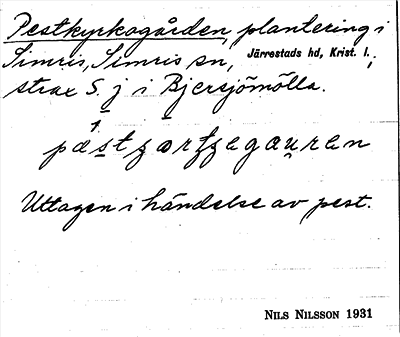 Pestkyrkogården, plantering i
Simris, Simris sn, Järrestads hd, Krist. l.;
strax S. j i Bjersjömölla.
Uttagen i händelse av pest.
NILS NILSSON 1931